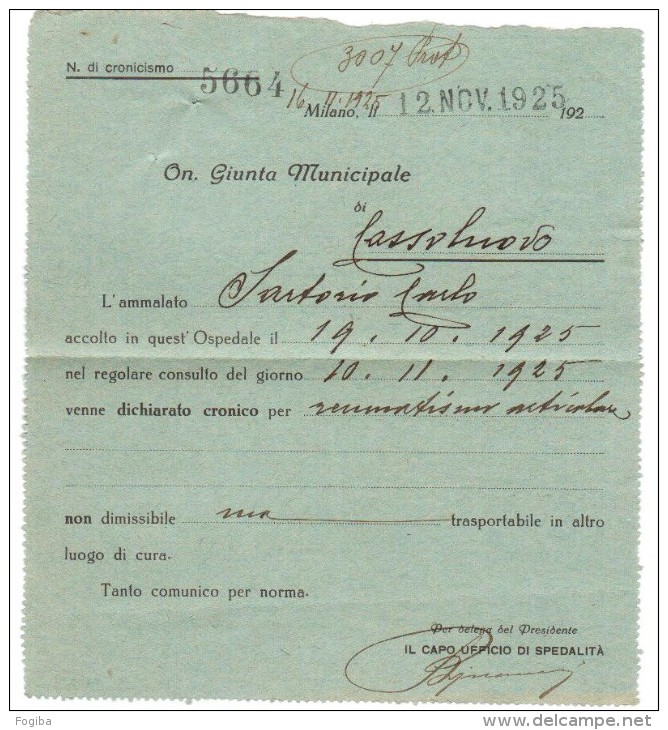 3007 Prot
N. di cronicismo 5664
16.11.1925
Milano, Il 12 NOV. 1925 192
On. Giunta Municipale
di
Cassolnovo
L'ammalato Sartorio Carlo
accolto in quest' Ospedale il 19. 10. 1925
nel regolare consulto del giorno 10. 11. 1925
venne dichiarato cronico per reumatismo articolare
non dimissibile ma trasportabile in altro
luogo di cura.
Tanto comunico per norma.
Per delega del Presidente
IL CAPO UFFICIO DI SPEDALITÀ
Fogiba
delcampe.net